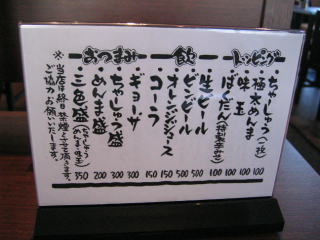 トッピング
・ちゃしゅう(一枚) 100
・極太めんま 100
・味玉 100
・ばくだん(特製辛みそ) 100
飲
・生ビール 500
・ビンビール 500
・オレンジジュース 150
・コーラ 150
おつまみ
・ギョーザ 300
・ちゃしゅう盛 300
・めんま盛 200
・三色盛(ちゃしゅう めんま・味玉) 350
※当店は終日禁煙とさせて頂きます。
ご協力お願いいたします。